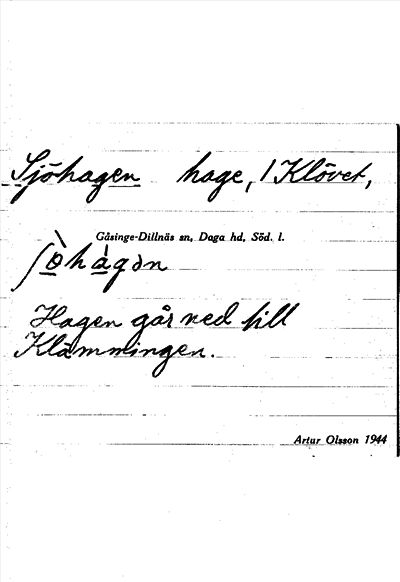 Sjöhagen hage, / Klövet,
Gåsinge-Dillnäs sn, Daga hd, Söd. l.
ʃòhàgən
Hagen går ned till
Klämmingen.
Artur Olsson 1944